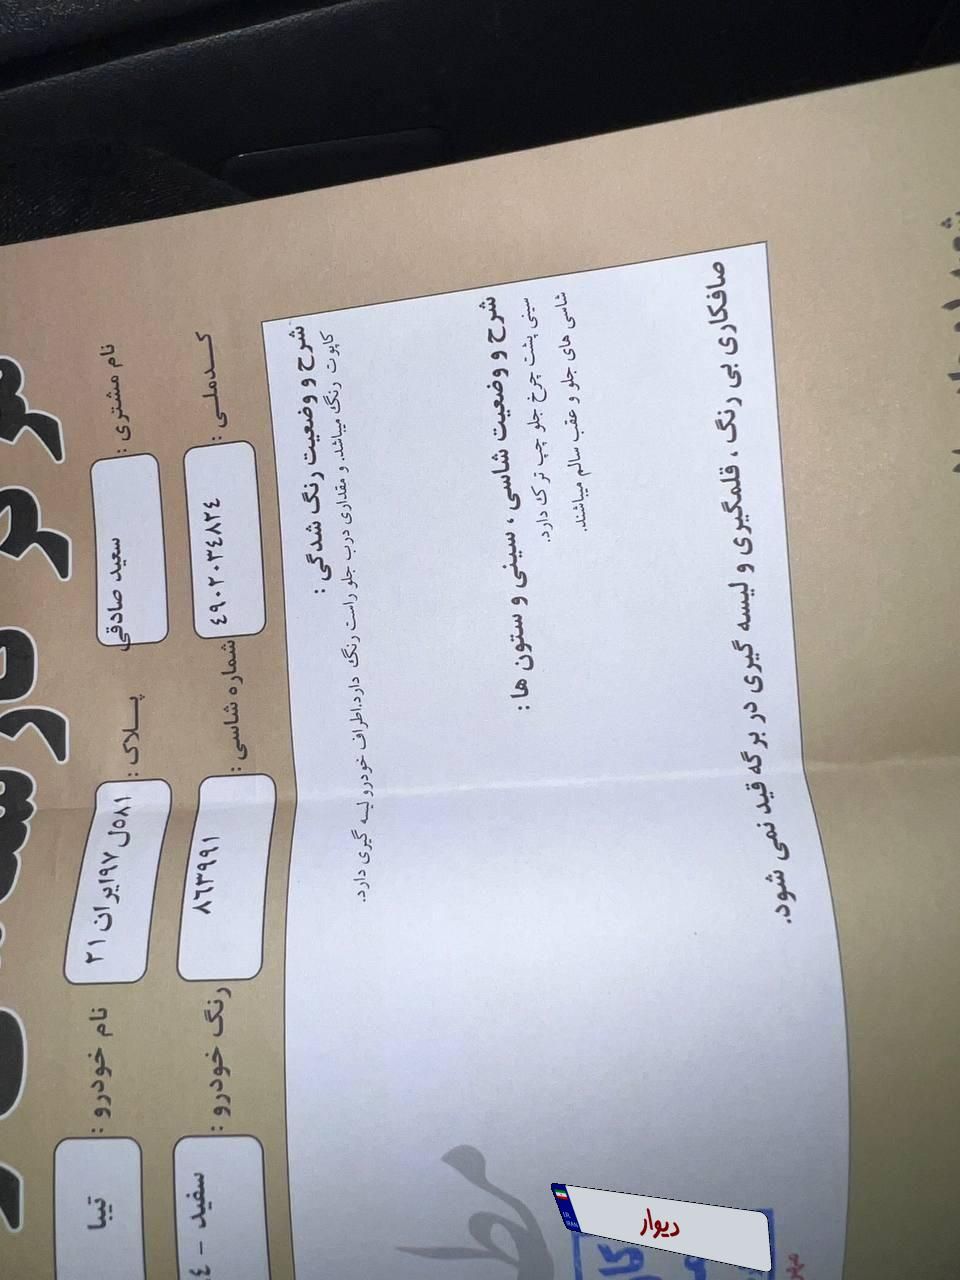 نام مشتری : سعید صادقی پلاک : ۵۸۱ل۹۷ایران۲۱ نام خودرو : تیبا
کدملی : ٤٩٠٢٠٣٤٨٢٤ شماره شاسی : ٨٦٣٩٩١ رنگ خودرو : سفید -
شرح و وضعیت رنگ شدگی :
کاپوت رنگ میباشد. و مقداری درب جلو راست رنگ دارد.اطراف خودرو لیسه گیری دارد.
شرح و وضعیت شاسی ، سینی و ستون ها :
سینی پشت چرخ جلو چپ ترک دارد.
شاسی های جلو و عقب سالم میباشند.
صافکاری بی رنگ ، قلمگیری و لیسه گیری در برگه قید نمی شود.
دیوار
I.R.
IRAN